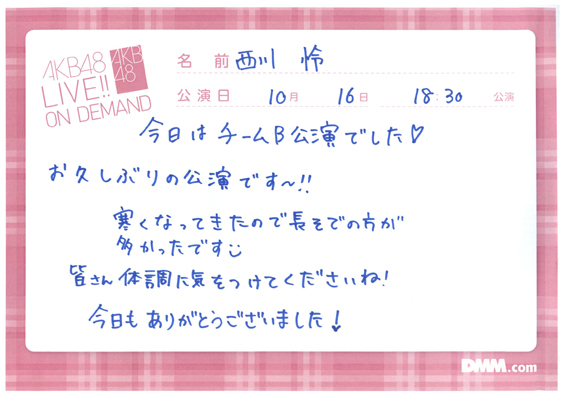 AKB48
LIVE!!
ON DEMAND
AKB
48
名前 西川 怜
公演日 10月 16日 18:30 公演
今日はチームB公演でした♡
お久しぶりの公演です〜!!
寒くなってきたので長そでの方が
多かったです
皆さん体調に気をつけてくださいね!
今日もありがとうございました!
DMM.com